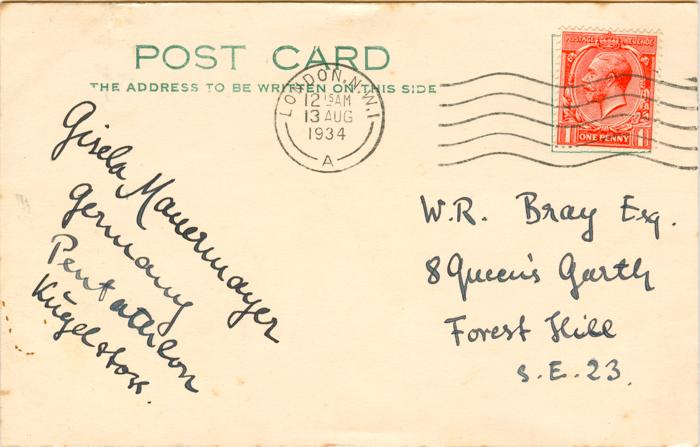 POST CARD
THE ADDRESS TO BE WRITTEN ON THIS SIDE
LONDON. N.W.1
12 15 AM
13 AUG
1934
A
POSTAGE REVENUE
ONE PENNY
Gisela Mauermayer
Germany
Pentathlon
Kugelstoss.
W.R. Bray Esq.
8 Queen's Garth
Forest Hill
S.E.23.